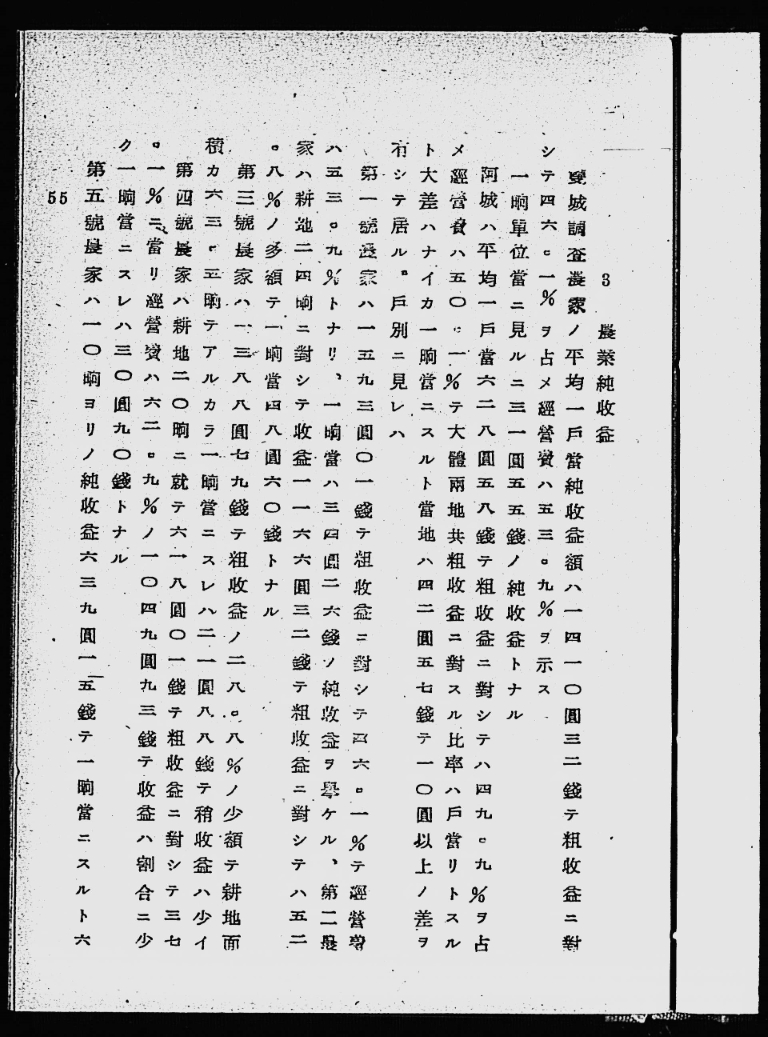 3　農業純收益
雙城調査農家ノ平均一戸當純收益額ハ一四一〇圓三二錢テ粗收益ニ對
シテ四六。一%ヲ占メ經營費ハ五三。九%ヲ示ス
一晌單位當ニ見ルニ三一圓五五錢ノ純收益トナル
阿城ハ平均一戸當六二八圓五八錢テ粗收益ニ對シテハ四九。九%ヲ占
メ經營費ハ五〇。一%テ大體兩地共粗收益ニ對スル比率ハ戸當リトスル
ト大差ハナイカ一晌當ニスルト當地ハ四二圓五七錢テ一〇圓以上ノ差ヲ
有シテ居ル。戸別ニ見レハ
第一號農家ハ一五九三圓〇一錢テ粗收益ニ對シテ四六。一%テ經營費
ハ五三。九%トナリ、一晌當ハ三四圓二六錢ノ純收益ヲ擧ケル、第二農
家ハ耕地二四晌ニ對シテ收益一一六六圓三二錢テ粗收益ニ對シテハ五二
。八%ノ多額テ一晌當四八圓六〇錢トナル
第三號農家ハ一三八八圓七九錢テ粗收益ノ二八。八%ノ少額テ耕地面
積カ六三。五晌テアルカラ一晌當ニスレハ二一圓八八錢テ稍收益ハ少イ
第四號農家ハ耕地二〇晌ニ就テ六一八圓〇一錢テ粗收益ニ對シテ三七
。一%ニ當リ經營費ハ六二。九%ノ一〇四九圓九三錢テ收益ハ割合ニ少
ク一晌當ニスレハ三〇圓九〇錢トナル
第五號農家ハ一〇晌ヨリノ純收益六三九圓一五錢テ一晌當ニスルト六
55